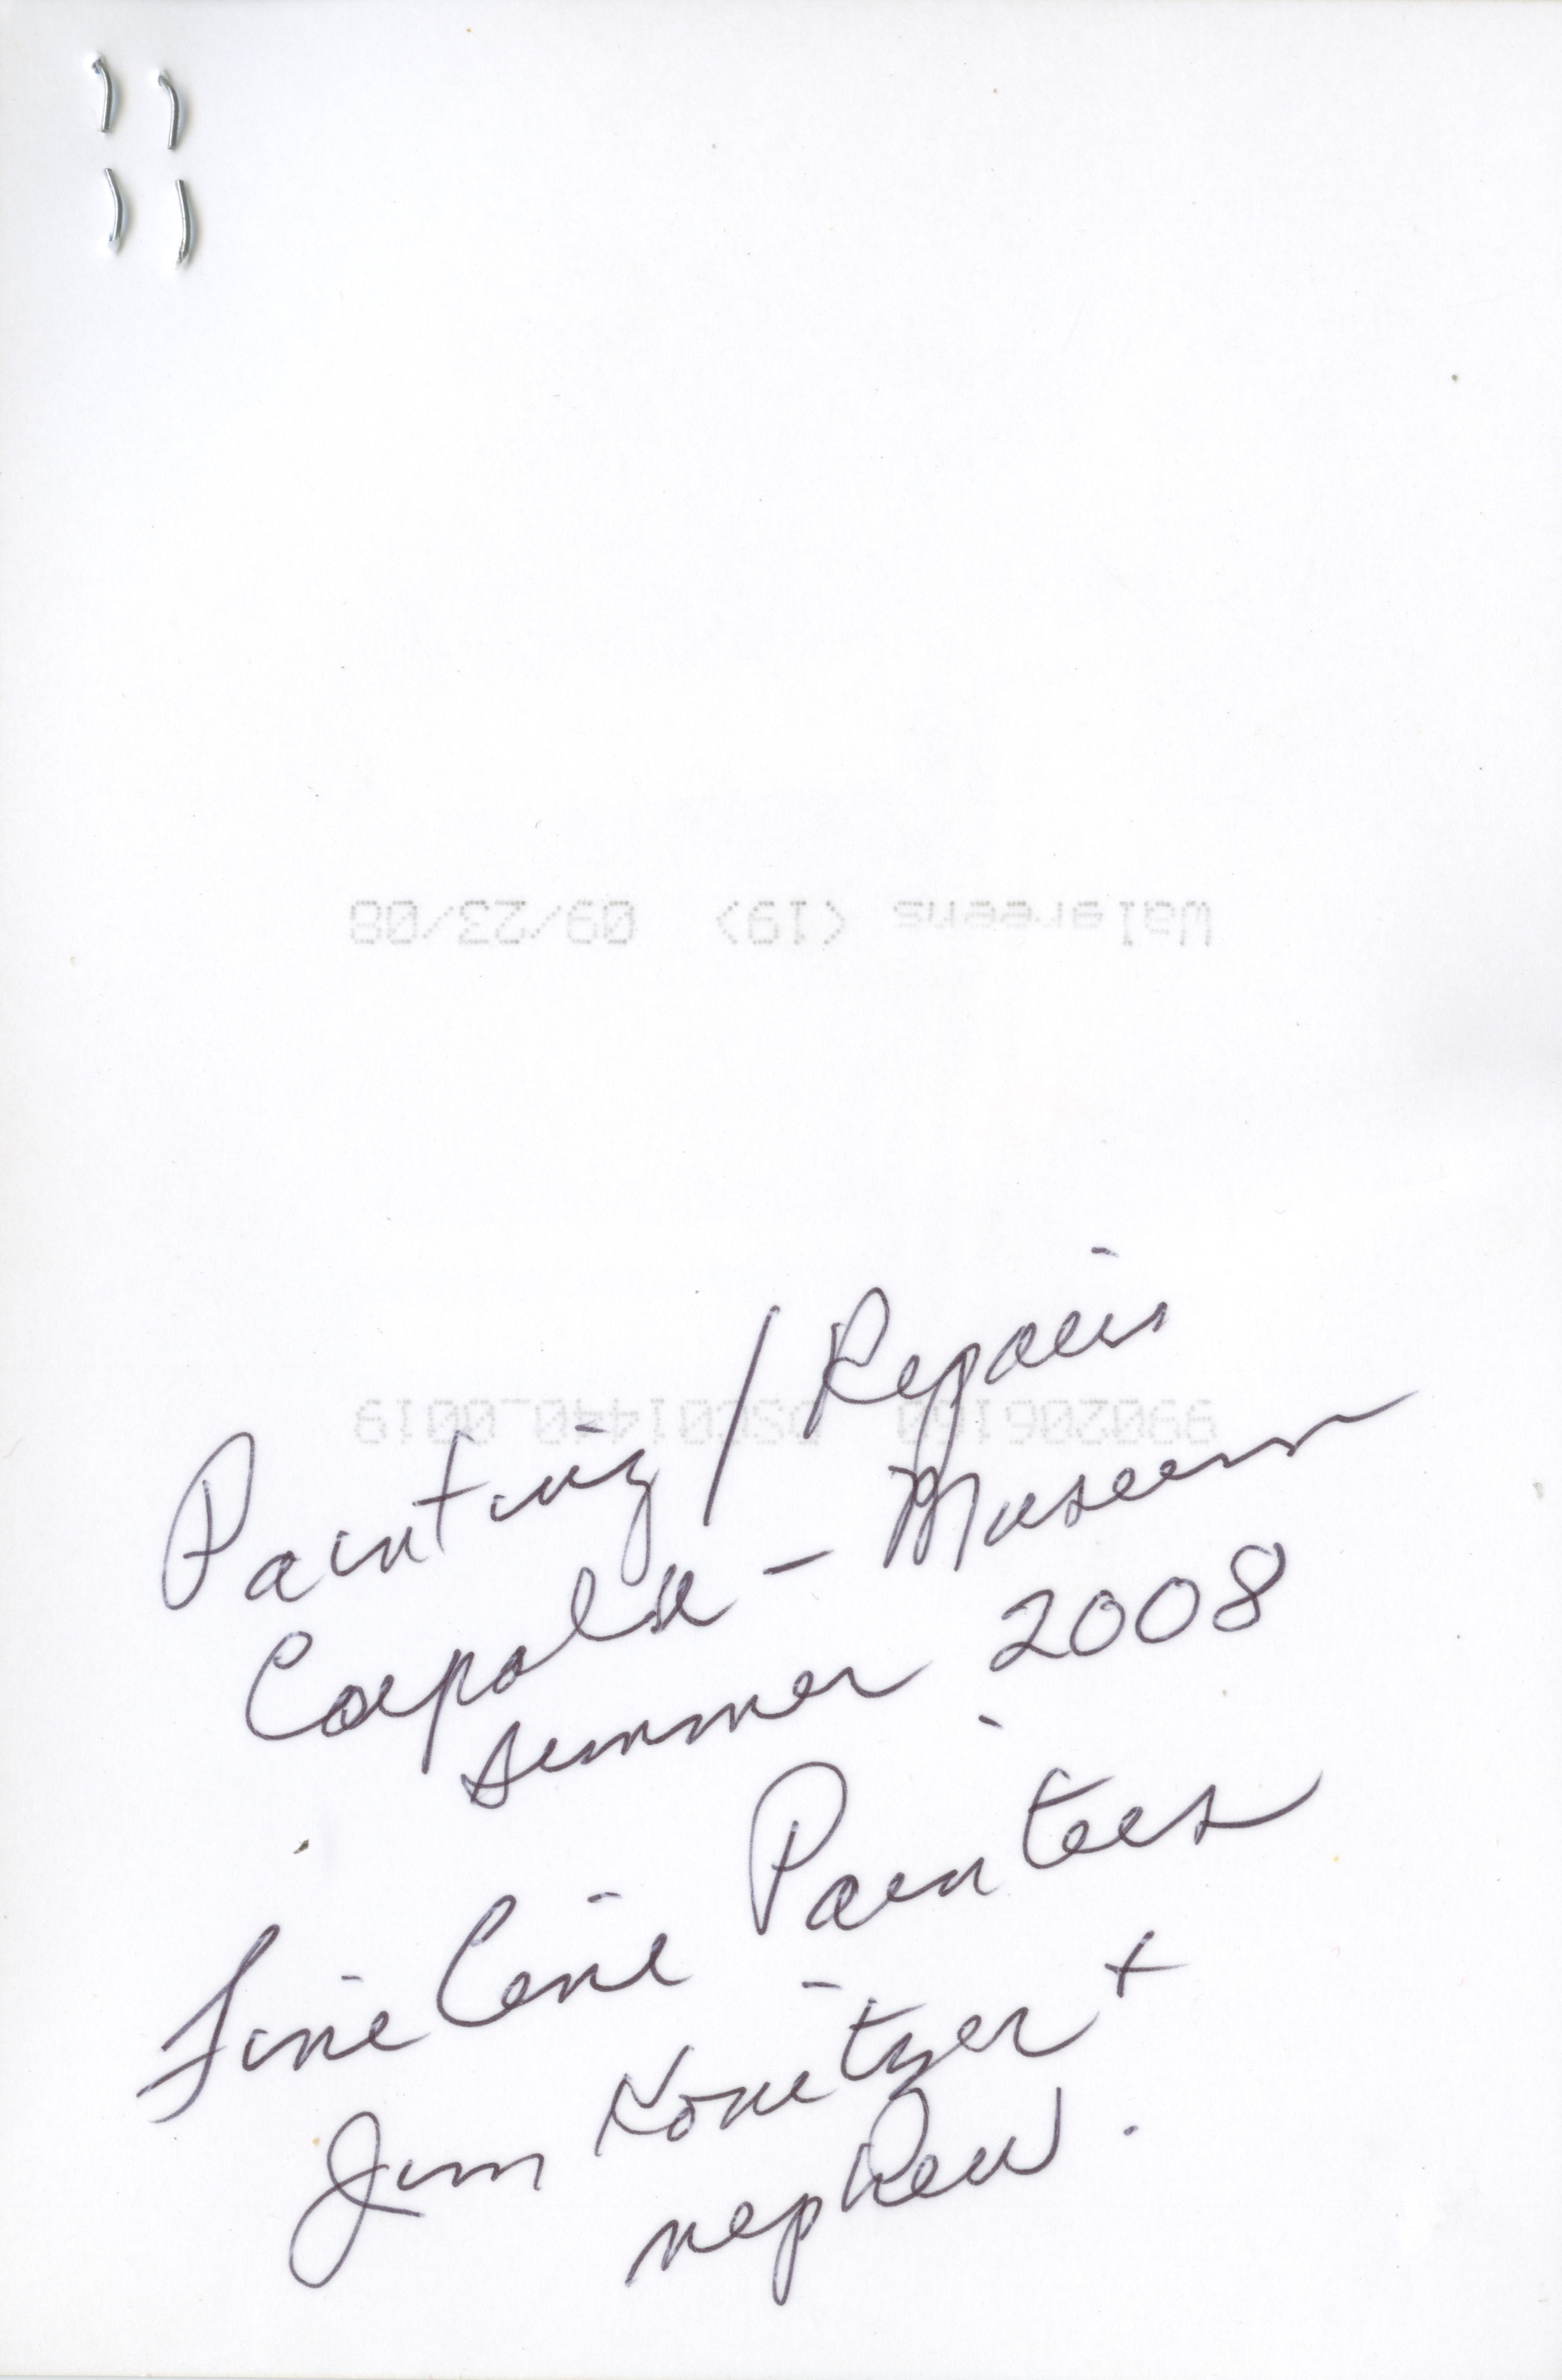 Walgreens <19> 09/23/08
990206160 DSC01440_0019
Painting / Repairs
Copola - Museum
summer 2008
Fine Line Painters
Jim Konitzer +
nephew.